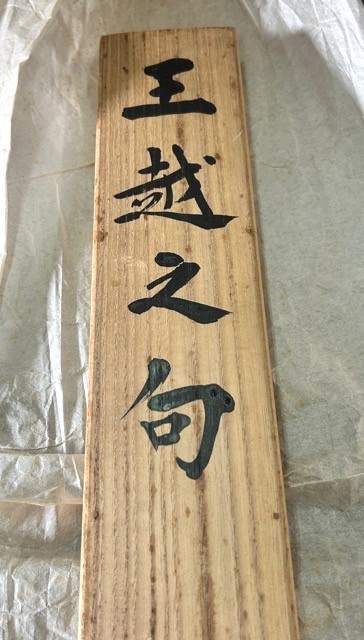 王越之句